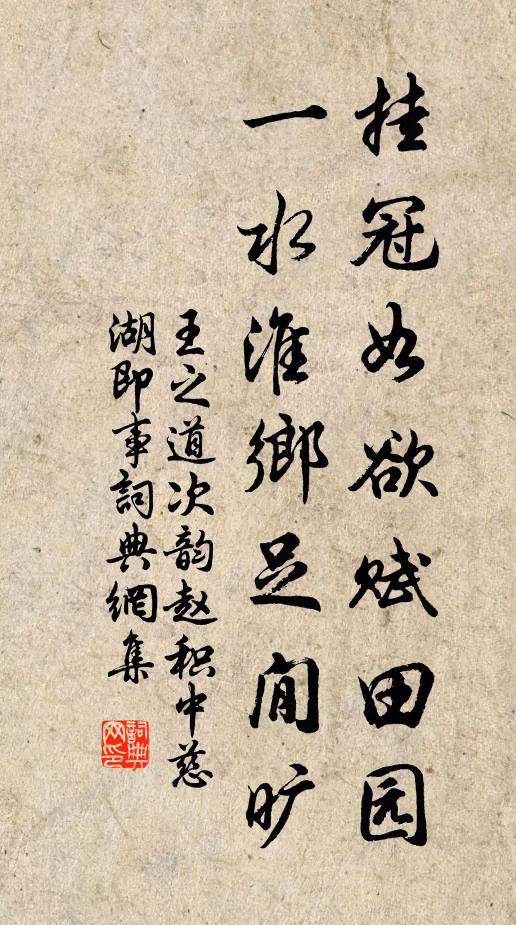 挂冠如欲赋田园
一水淮鄉足閒旷
王之道次韵赵积中慈
湖即事詞典網集
詞典网印